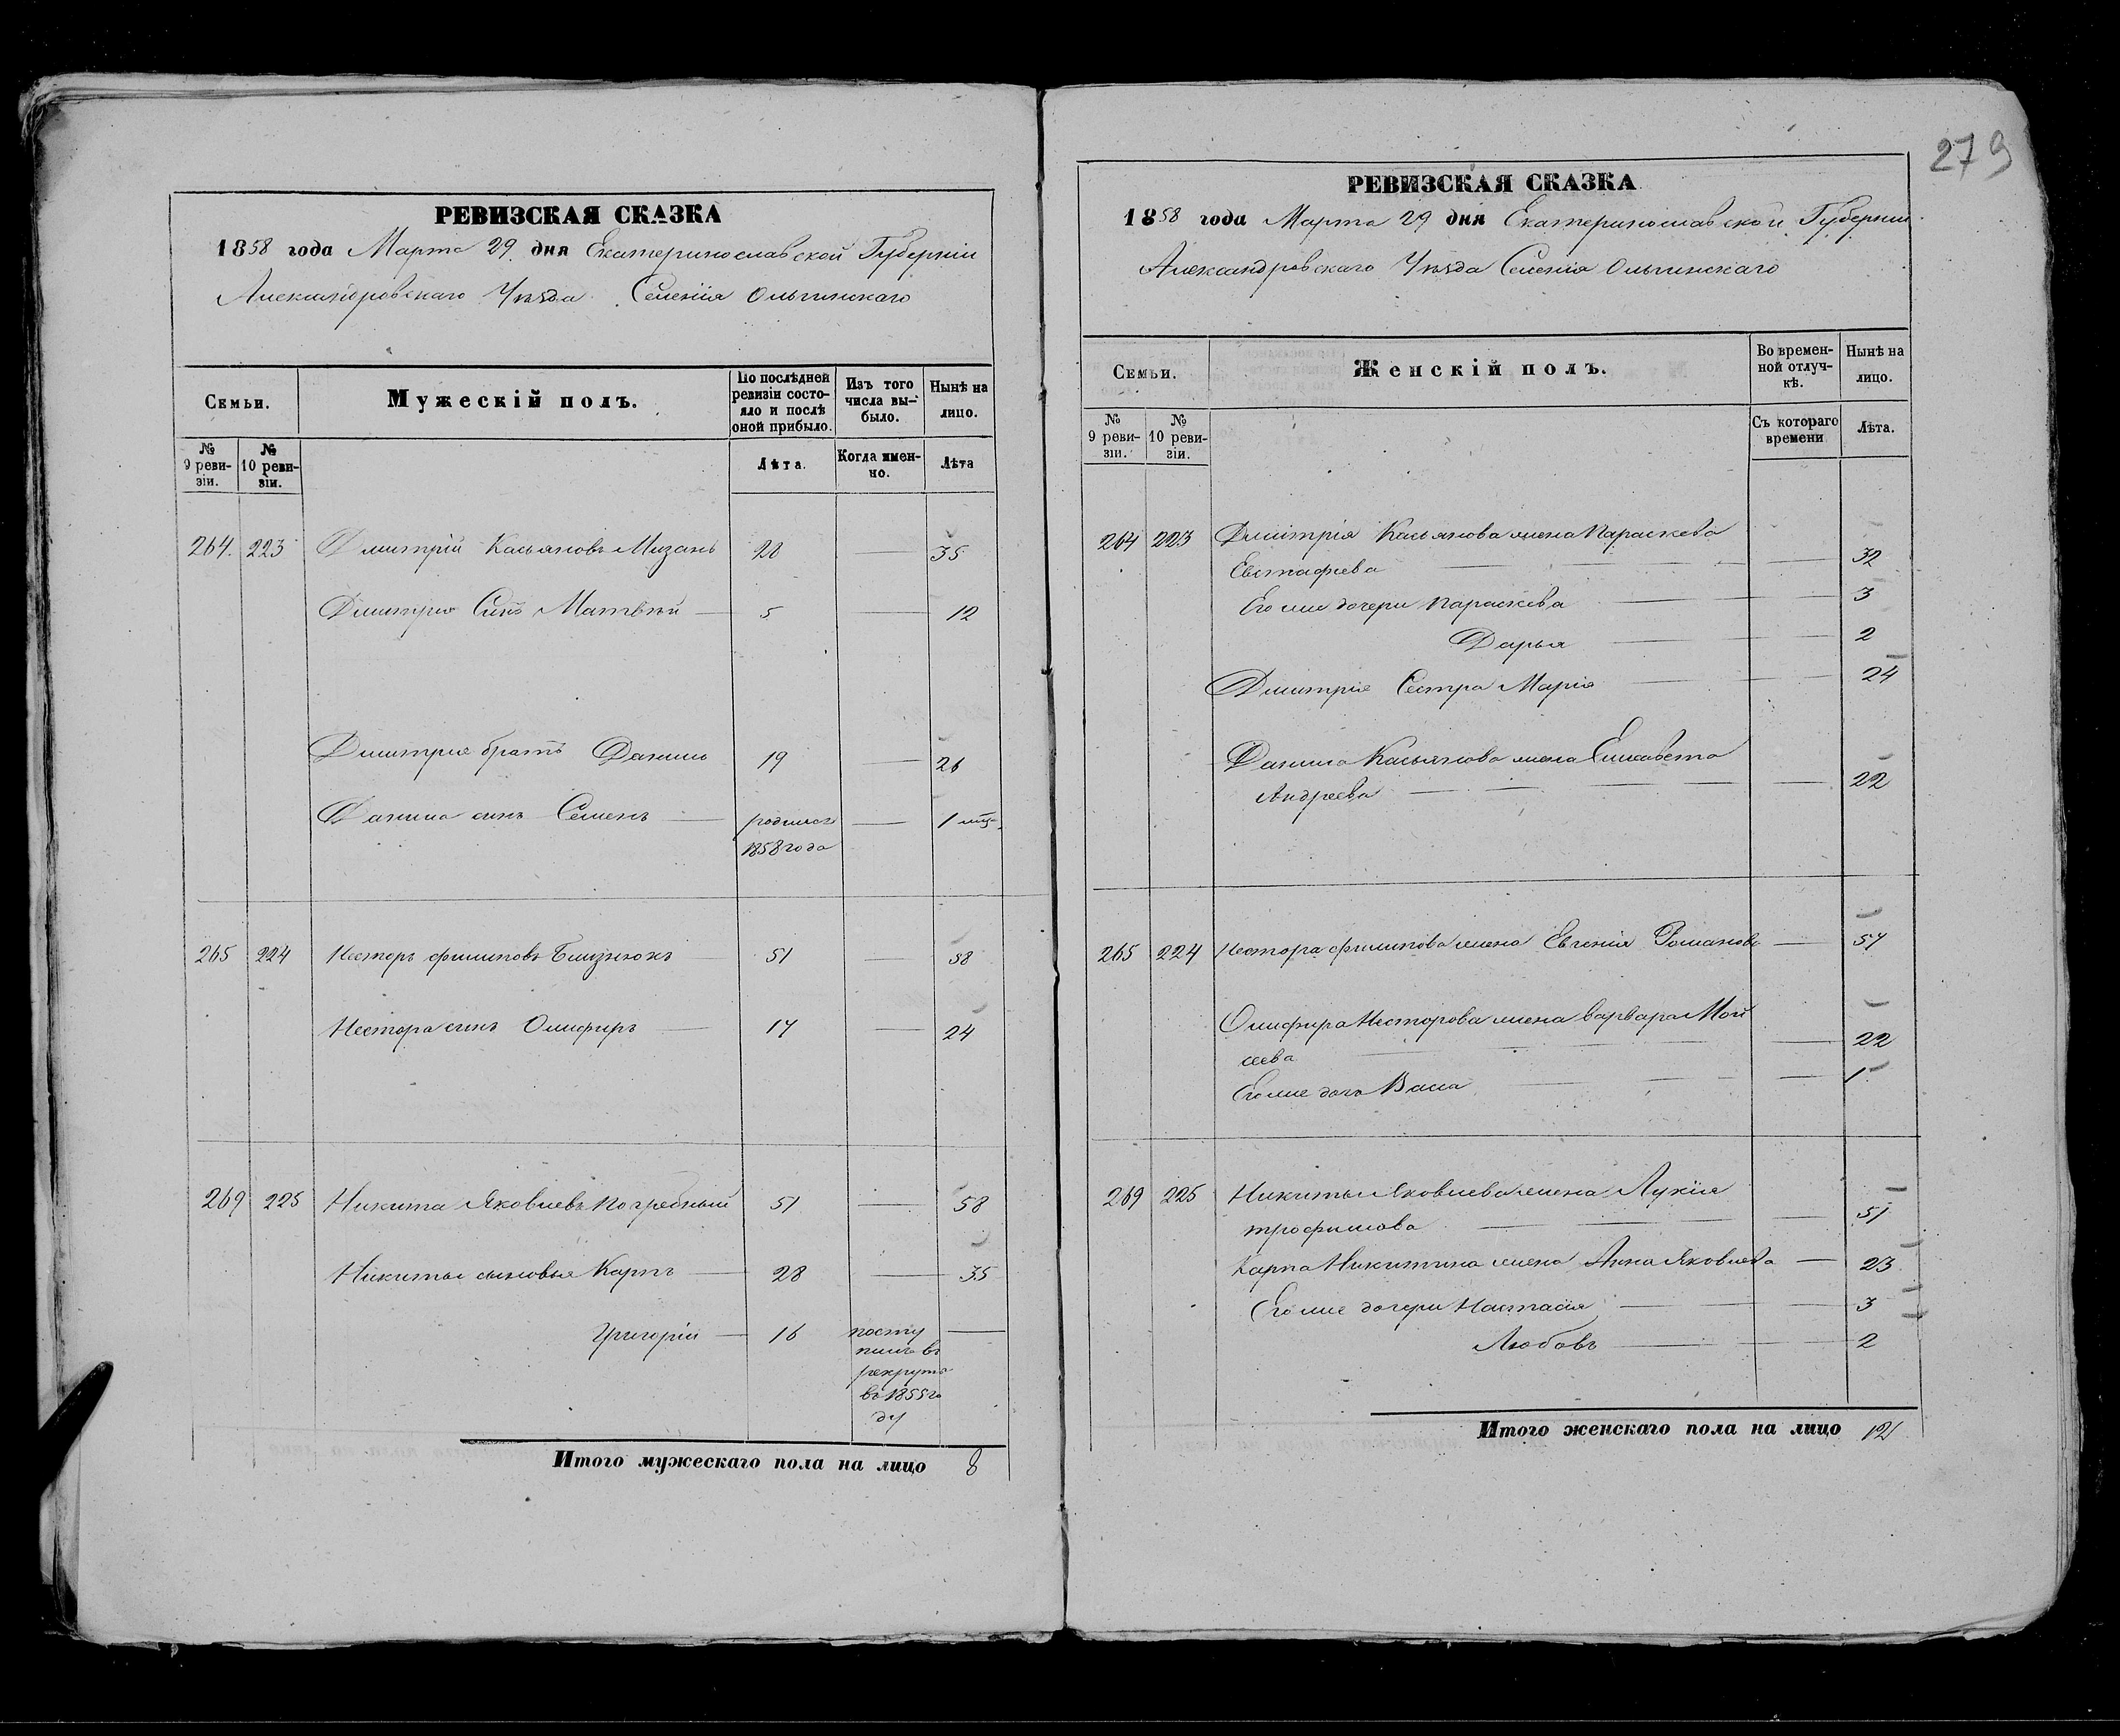 279
РЕВИЗСКАЯ СКАЗКА
1858 года Марта 29 дня Екатеринославской Губерніи
Александровскаго Уѣзда Селенія Ольгинскаго
Семьи.
Мужескій полъ.
По послѣдней ревизіи состояло и послѣ оной прибыло.
Изъ того числа выбыло.
Нынѣ на лицо.
№ 9 ревизіи.
№ 10 ревизіи.
Лѣта.
Когда именно.
Лѣта
264. 223 Дмитрій Касьяновъ Мизань 28 35
Дмитрія Сынъ Матвѣй 5 12
Дмитрія братъ Данило 19 26
Данила сынъ Семенъ родился 1 мѣц.
1858 года
265 224 Несторъ филиповъ Близнюкъ 51 58
Нестора сынъ Олифиръ 17 24
269 225 Никита Яковлевъ Погребный 51 58
Никиты сыновья Карпъ 28 35
Григорій 16 посту
пилъ въ
рекруты
въ 1855 го
ду
Итого мужескаго пола на лицо 8
РЕВИЗСКАЯ СКАЗКА
1858 года Марта 29 дня Екатеринославской Губерніи
Александровскаго Уѣзда Селенія Ольгинскаго
Семьи.
Женскій полъ.
Во временной отлучкѣ.
Нынѣ на лицо.
№ 9 ревизіи.
№ 10 ревизіи.
Съ котораго времени
Лѣта.
264 223 Дмитрія Касьянова жена Параскева
Евстафиева 32
Его же дочери параскева 3
Дарья 2
Дмитрія Сестра Марія 24
Данила Касьянова жена Елисавета
Андреева 22
265 224 Нестора филипова жена Евгенія Романова 57
Олифира Несторова жена варвара Мой
сеева 22
Его же дочь 1
269 225 Никиты Яковлева жена Лукія
трофимова 51
Карпа Никитина жена Анна Яковлева 23
Его же дочери Настасія 3
Любовь 2
Итого женскаго пола на лицо 12